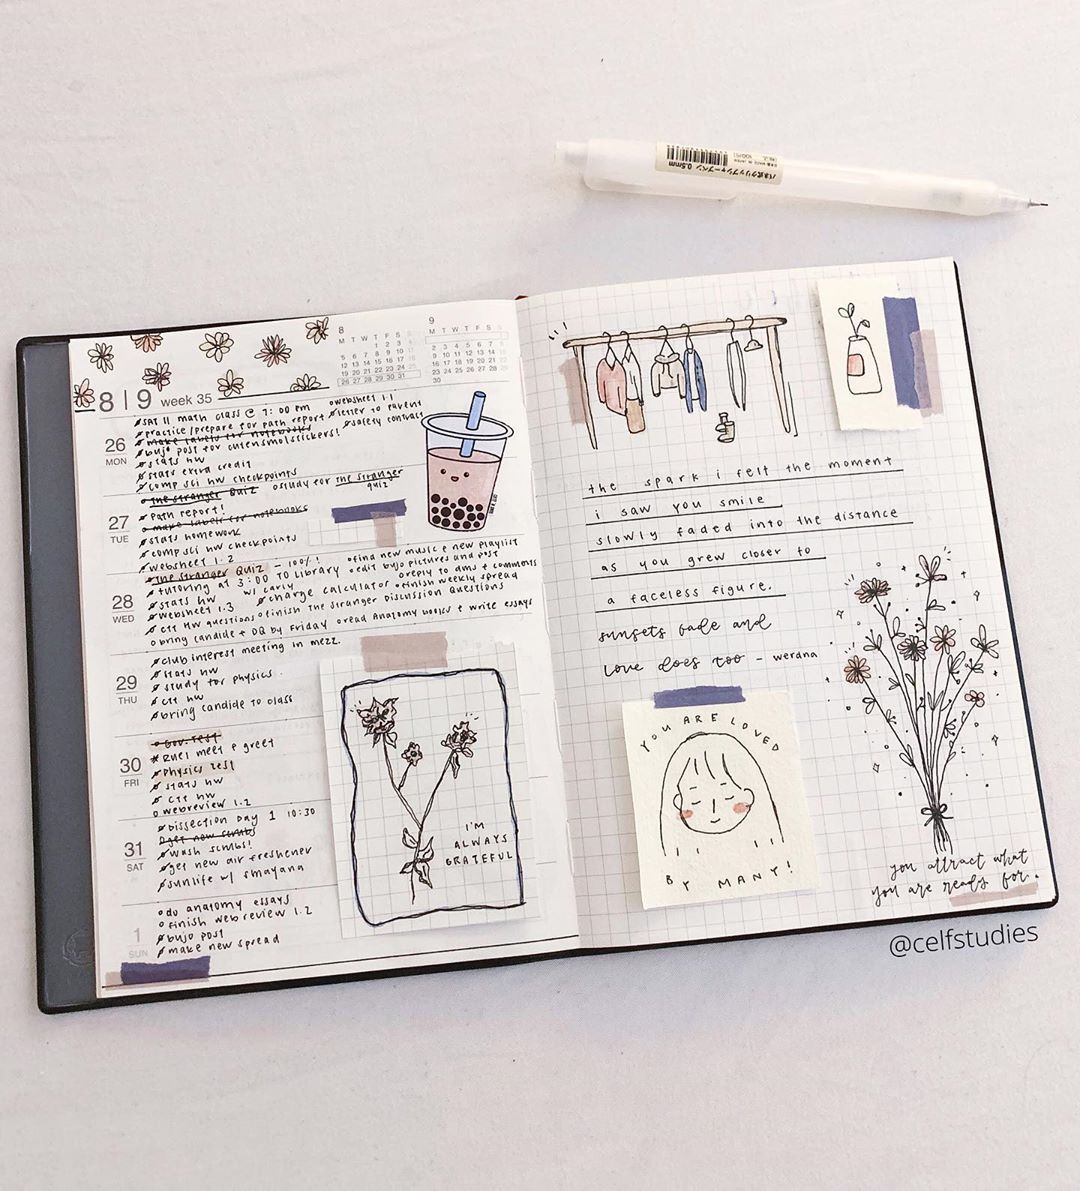 バネ式クリップシャープペン
0.5mm
8 9
M T W T F S S
1 2 3 4
5 6 7 8 9 10 11
12 13 14 15 16 17 18
19 20 21 22 23 24 25
26 27 28 29 30 31
M T W T F S S
1
2 3 4 5 6 7 8
9 10 11 12 13 14 15
16 17 18 19 20 21 22
23 24 25 26 27 28 29
30
8 | 9 week 35
26 MON
SAT II math class @ 7:00 pm websheet 1.1
practice/prepare for path report letter to parent
make labels for notebooks safety contract
bujo post for cutensmolstickers!
stats hw
stats extra credit
comp sci hw checkpoints
27 TUE
the stranger quiz study for the stranger quiz
path report!
make labels for notebooks
stats homework
comp sci hw checkpoints
websheet 1.2
28 WED
the stranger quiz - 100%! find new music & new playlist
tutoring at 3:00 TO Library edit bujo pictures and post
stats hw w/ carly reply to dms + comments
websheet 1.3 charge calculator finish weekly spread
CTT HW questions finish the stranger Discussion Questions
bring candide + DQ by Friday read Anatomy books + write essays
29 THU
club interest meeting in mezz.
stats hw
study for physics.
CTT hw
bring candide to class
30 FRI
Gov. Test
meet & greet
physics test
stats hw
CTT hw
webreview 1.2
31 SAT
dissection day 1 10:30
get new scrubs
wash scrubs!
get new air freshener
sunlife w/ smayana
1 SUN
do anatomy essays
finish webreview 1.2
bujo post
make new spread
I'M
ALWAYS
GRATEFUL
the spark i felt the moment
i saw you smile
slowly faded into the distance
as you grew closer to
a faceless figure.
sunsets fade and
love does too - werdna
YOU ARE LOVED
BY MANY!
you attract what
you are ready for.
@celfstudies